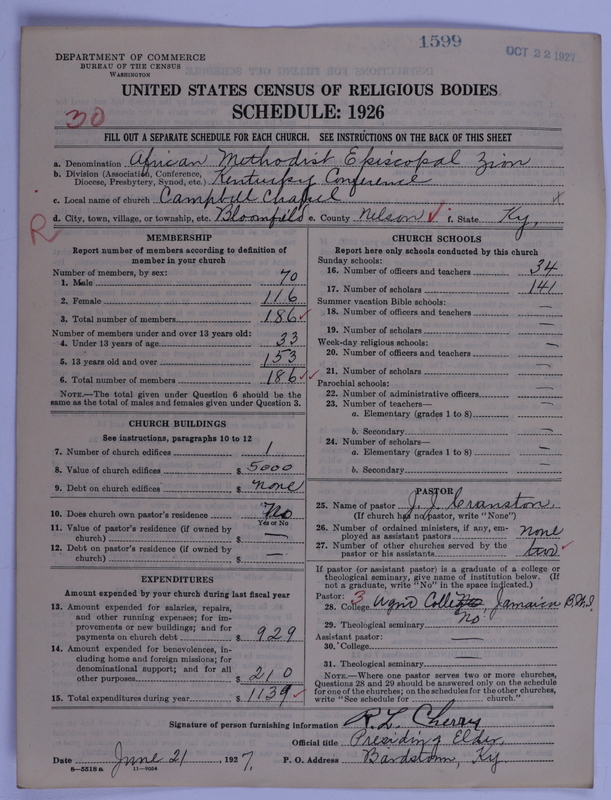 1599
OCT 22 1927
DEPARTMENT OF COMMERCE
BUREAU OF THE CENSUS
WASHINGTON
UNITED STATES CENSUS OF RELIGIOUS BODIES
SCHEDULE: 1926
30
FILL OUT A SEPARATE SCHEDULE FOR EACH CHURCH. SEE INSTRUCTIONS ON THE BACK OF THIS SHEET
a. Denomination African Methodist Episcopal Zion
b. Division (Association, Conference, Diocese, Presbytery, Synod, etc.) Kentucky Conference
c. Local name of church Campbell Chapel x
d. City, town, village, or township, etc. Bloomfield e. County Nelson ✓ f. State Ky.
R
MEMBERSHIP
Report number of members according to definition of
member in your church
Number of members, by sex:
1. Male 70
2. Female 116
3. Total number of members 186 ✓
Number of members under and over 13 years old:
4. Under 13 years of age 33
5. 13 years old and over 153
6. Total number of members 186 ✓✓
NOTE.—The total given under Question 6 should be
same as the total of males and females given under Question 3.
CHURCH BUILDINGS
See instructions, paragraphs 10 to 12
7. Number of church edifices 1
8. Value of church edifices $ 5000
9. Debt on church edifices $ none
10. Does church own pastor's residence No
Yes or No
11. Value of pastor's residence (if owned by
church) $ —
12. Debt on pastor's residence (if owned by
church) $ —
EXPENDITURES
Amount expended by your church during last fiscal year
13. Amount expended for salaries, repairs,
and other running expenses; for im-
provements or new buildings; and for
payments on church debt $ 929
14. Amount expended for benevolences, in-
cluding home and foreign missions; for
denominational support; and for all
other purposes $ 210
15. Total expenditures during year $ 1139 ✓
CHURCH SCHOOLS
Report here only schools conducted by this church
Sunday schools:
16. Number of officers and teachers 34
17. Number of scholars 141
Summer vacation Bible schools:
18. Number of officers and teachers —
19. Number of scholars —
Week-day religious schools: —
20. Number of officers and teachers
21. Number of scholars —
Parochial schools:
22. Number of administrative officers —
23. Number of teachers—
a. Elementary (grades 1 to 8) —
b. Secondary —
24. Number of scholars—
a. Elementary (grades 1 to 8) —
b. Secondary —
PASTOR
25. Name of pastor J. J. Cranston,
(If church has no pastor, write "None")
26. Number of ordained ministers, if any, em-
ployed as assistant pastors none
27. Number of other churches served by the
pastor or his assistants two ✓
If pastor (or assistant pastor) is a graduate of a college or
theological seminary, give name of institution below. (If
not a graduate, write "No" in the space indicated.)
Pastor: 3
28. College College, Jamaica B.W.I.
29. Theological seminary No
Assistant pastor: —
30. College
31. Theological seminary —
NOTE.—Where one pastor serves two or more churches,
Questions 28 and 29 should be answered only on the schedule
for one of the churches; on the schedules for the other churches,
write "See schedule for ............ church."
Signature of person furnishing information R. L. Cherry
Official title Presiding Elder,
Date June 21, 1927. P. O. Address Bardstown, Ky.
8—5518 a 11—9054